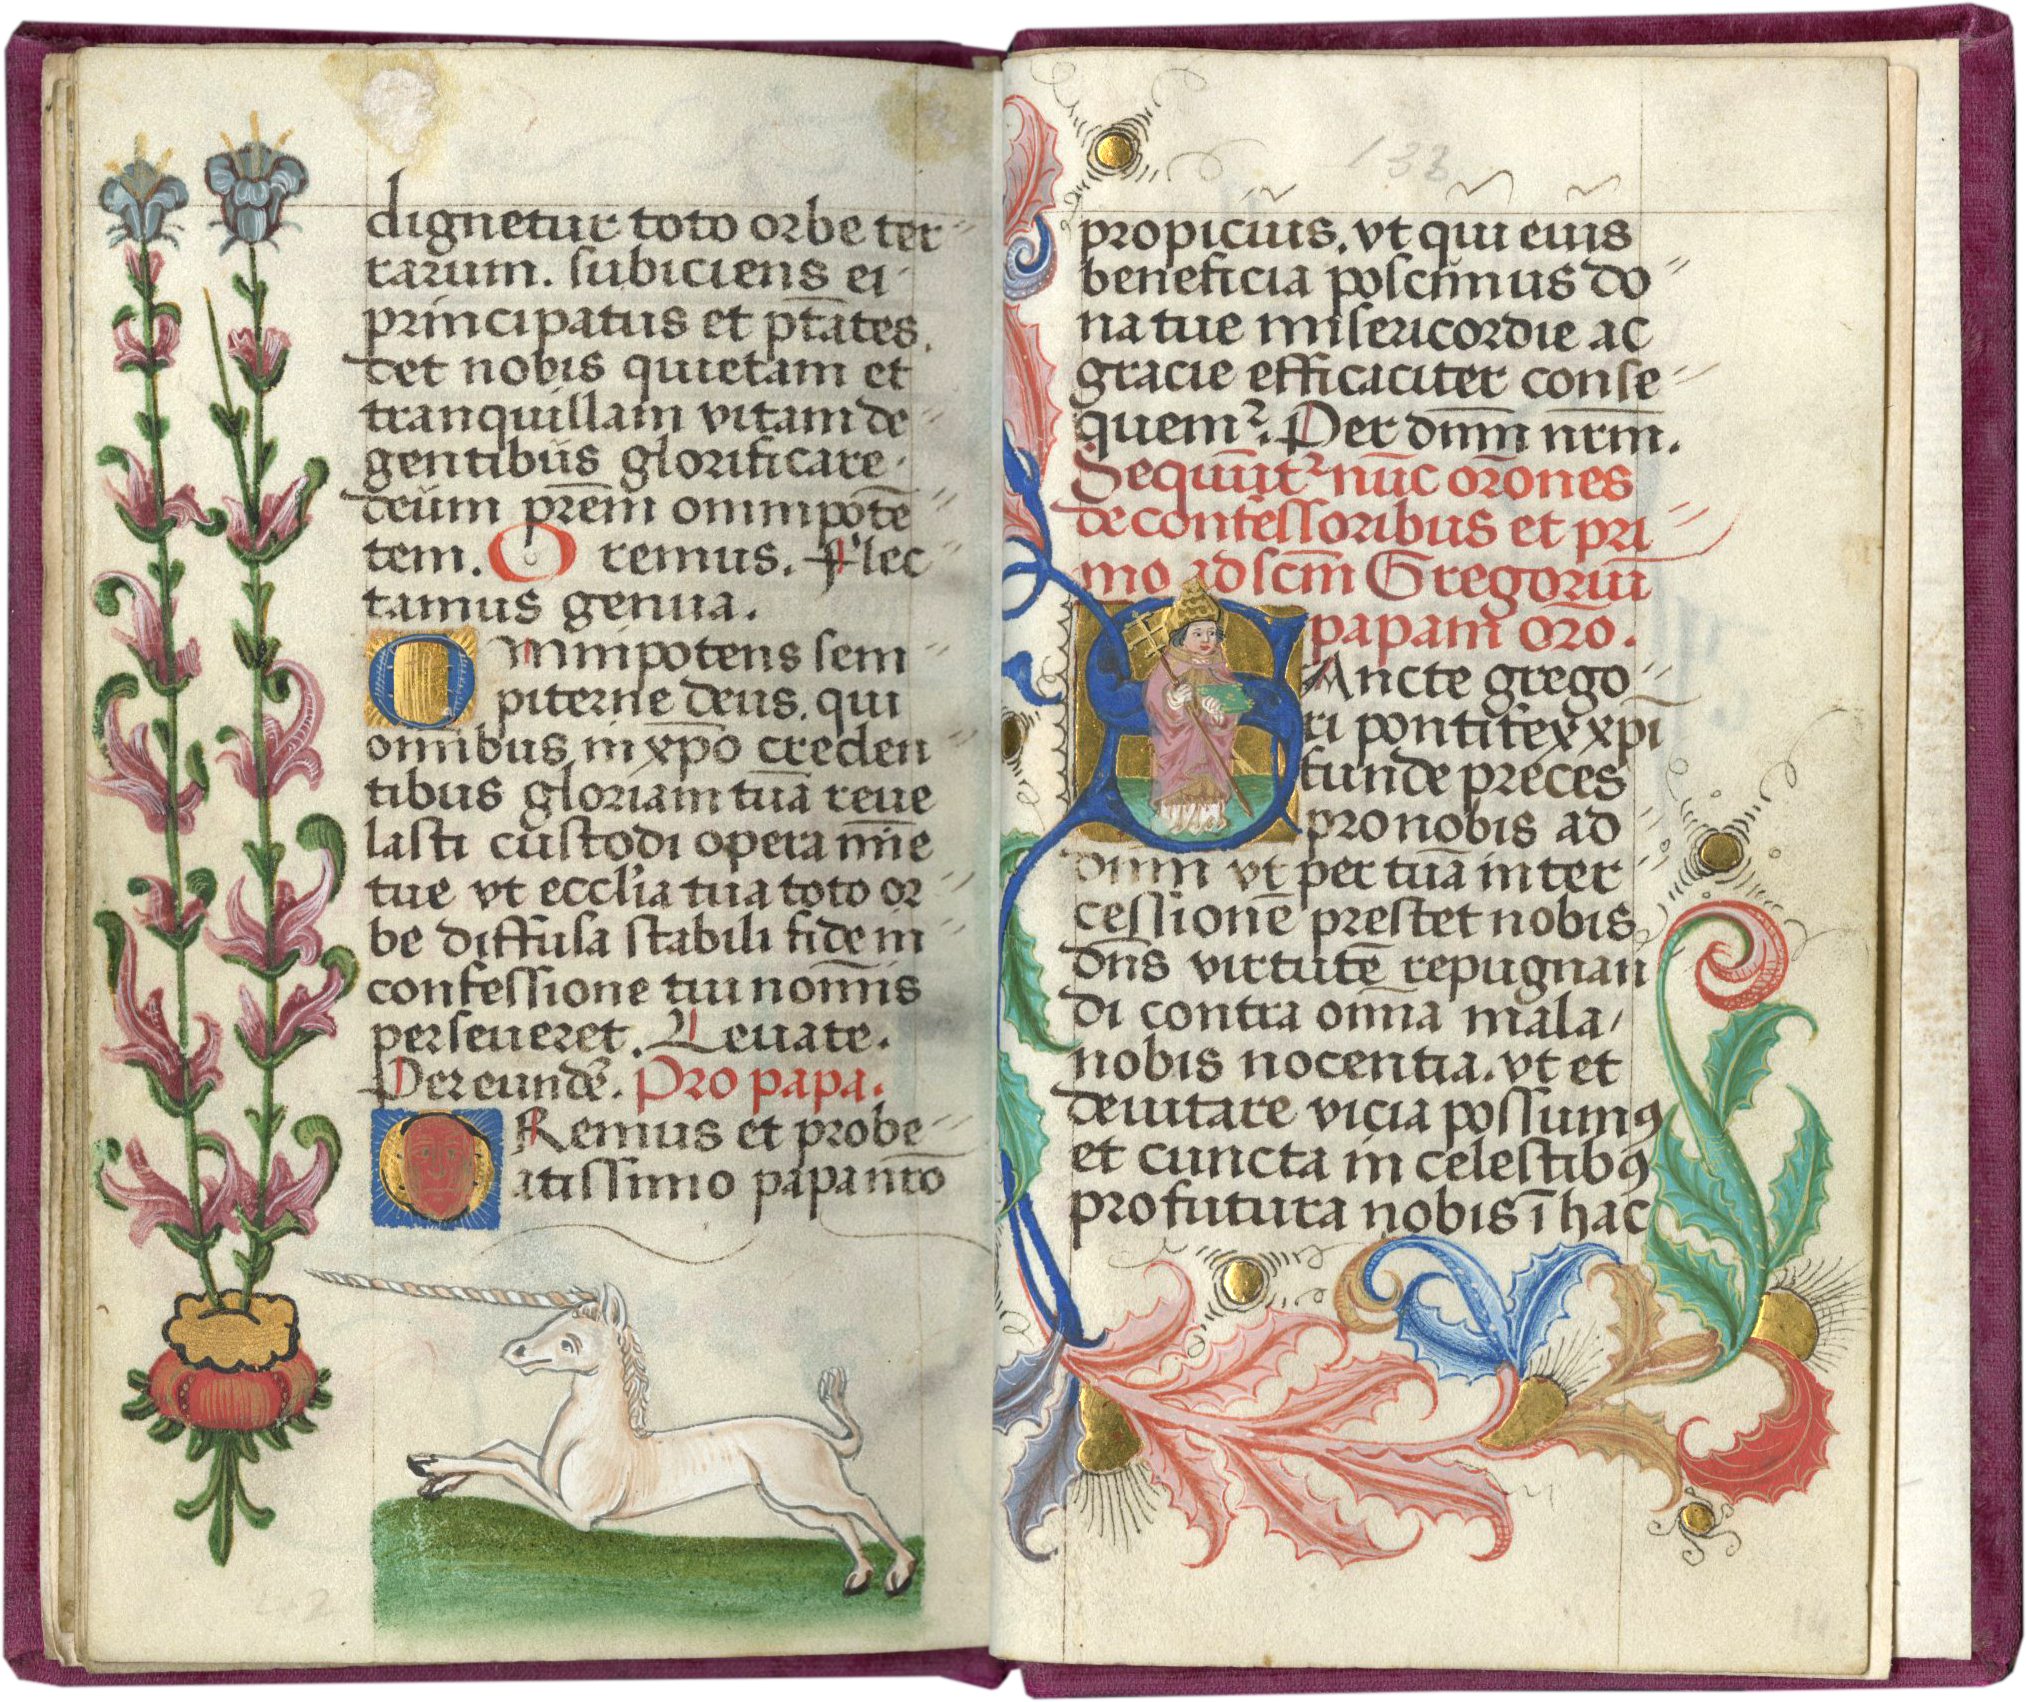 dignetur toto orbe ter
rarum. subiciens ei
principatus et ptates.
det nobis quietam et
tranquillam vitam de
gentibus glorificare
deum prem omnipote
tem. Oremus. Flec
tamus genua.
Omnipotens sem
piterne deus. qui
omnibus in xpo creden
tibus gloriam tua reue
lasti custodi opera mie
tue vt ecclia tua toto or
be diffusa stabili fide in
confessione tui nomis
perseueret. Leuate.
Per eunde. Pro papa.
Oremus et pro be
atissimo papa nro
133
propicius. vt qui eius
beneficia poscimus do
na tue misericordie ac
gracie efficaciter conse
quem². Per dnm nrm.
Sequut² nuc orones
de confessoribus et pri
mo ad scm Gregoriu
papam oro.
SAncte grego
ri pontifex xpi
funde preces
pro nobis ad
dnm vt per tua inter
cessione prestet nobis
dns virtute repugnan
di contra omia mala
nobis nocentia. vt et
deuitare vicia possumꝰ
et cuncta in celestibꝰ
profutura nobis i hac